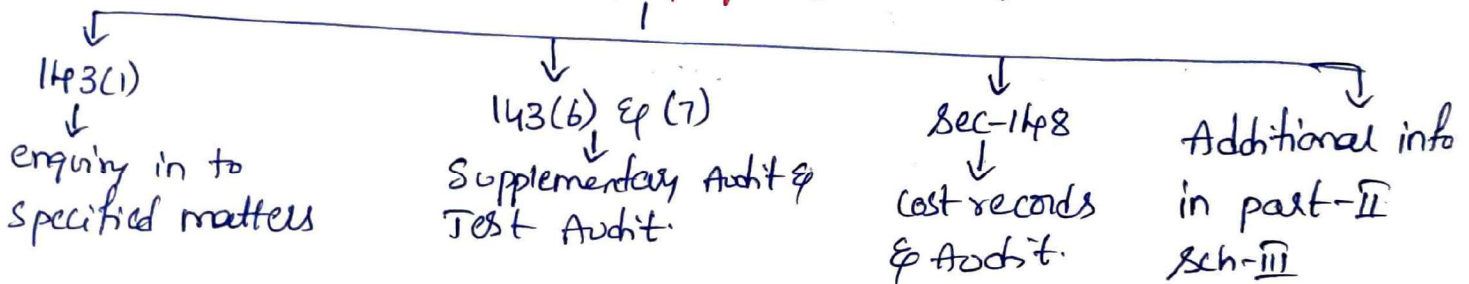 143(1)
enquiry in to
specified matters
143(6) & (7)
Supplementary Audit &
Test Audit.
Sec-148
Cost records
& Audit.
Additional info
in part-II
Sch-III